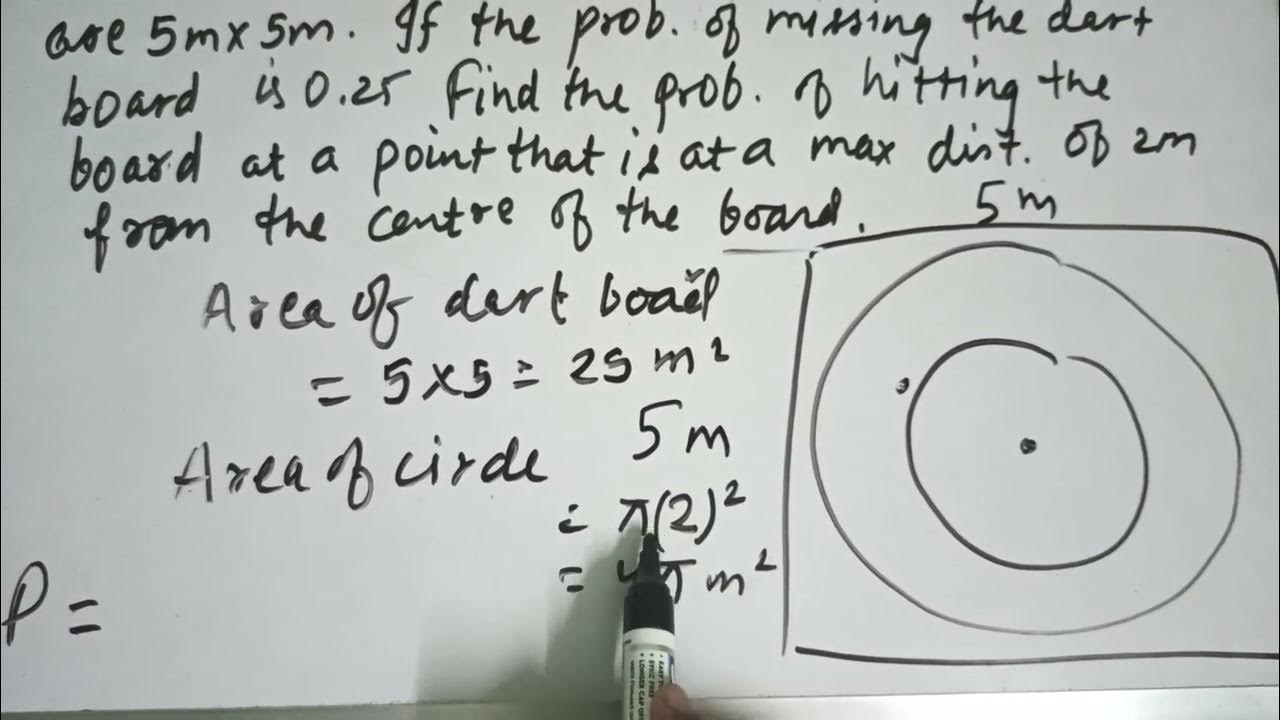 are 5m x 5m. If the prob. of missing the dart
board is 0.25 Find the prob. of hitting the
board at a point that is at a max dist. of 2m
from the centre of the board.
5m
Area of dart board
= 5×5 = 25 m²
5m
Area of circle
= π(2)²
= 4π m²
P =